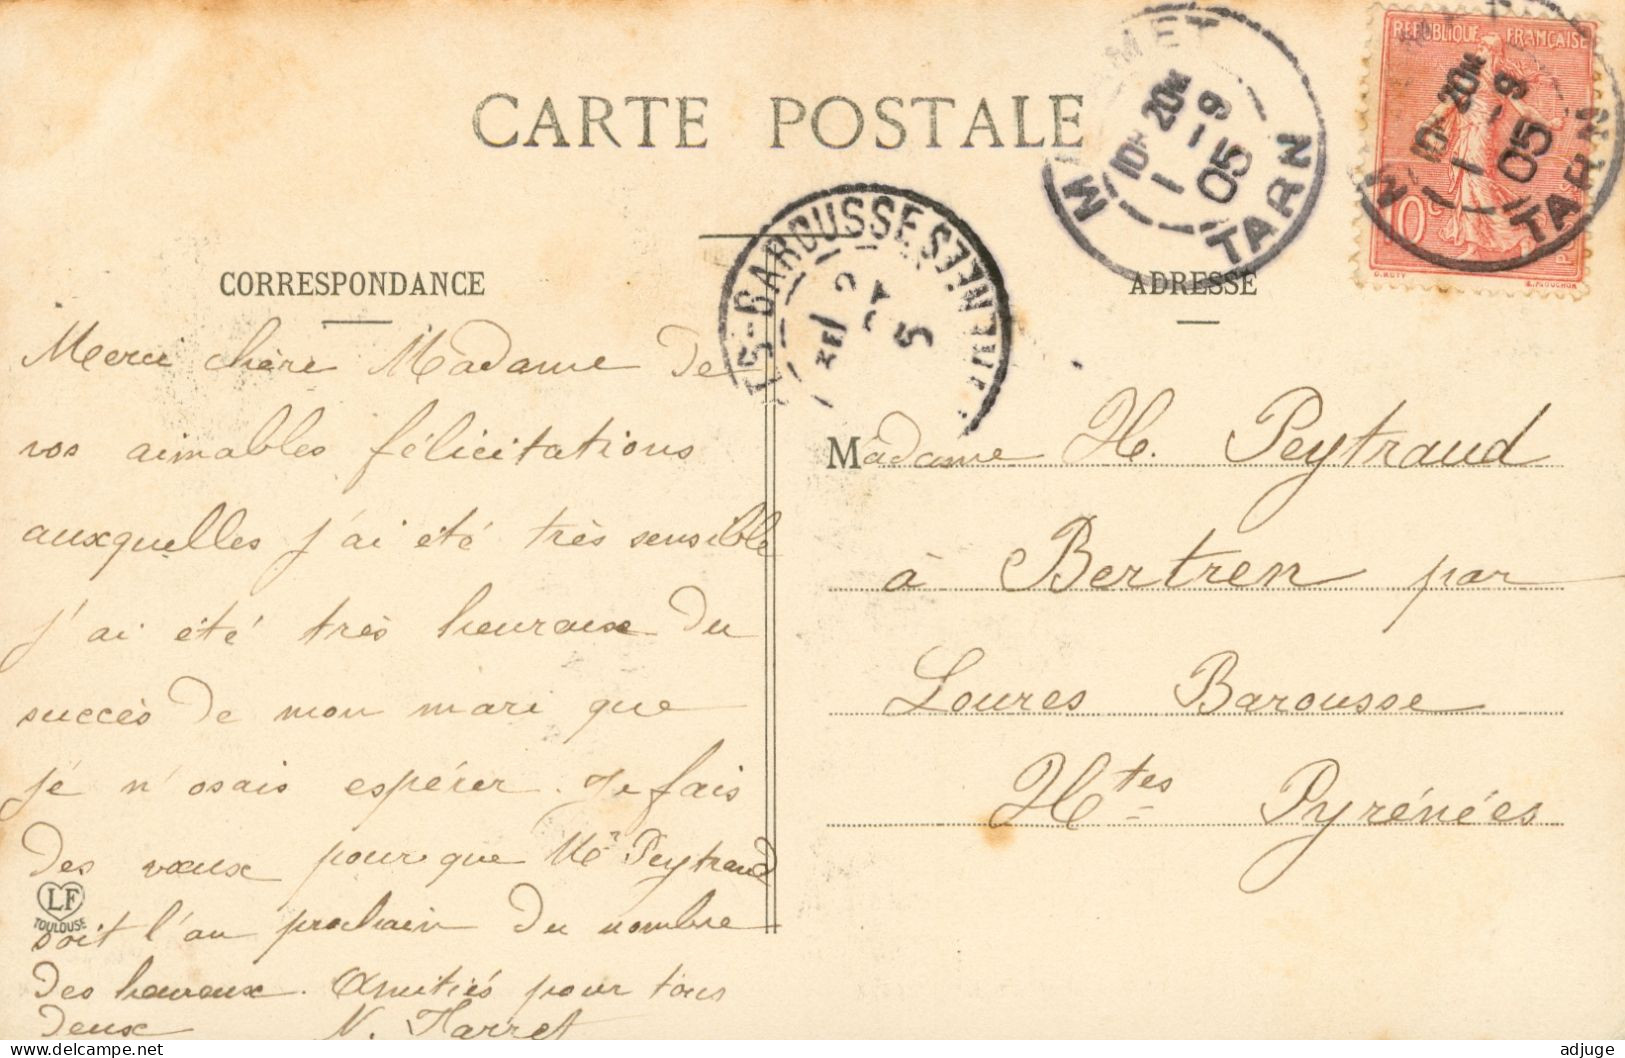 CARTE POSTALE
CORRESPONDANCE
Merci chère Madame de
vos aimables félicitations
auxquelles j'ai été très sensible
j'ai été très heureux du
succès de mon mari que
je n'osais espérer. Je fais
des vœux pour que Mr Peytraud
soit l'an prochain du nombre
des heureux. Amitiés pour tous
deux N. Harret
LF
TOULOUSE
ADRESSE
Madame H. Peytraud
à Bertren par
Loures Barousse
Htes Pyrénées
REPUBLIQUE FRANÇAISE
10c
O. ROTY
L. MOUCHON
10H 20M
1-9
05
TARN
10H 20M
1-9
05
TARN
BAROUSSE
5
delcampe.net
adjuge